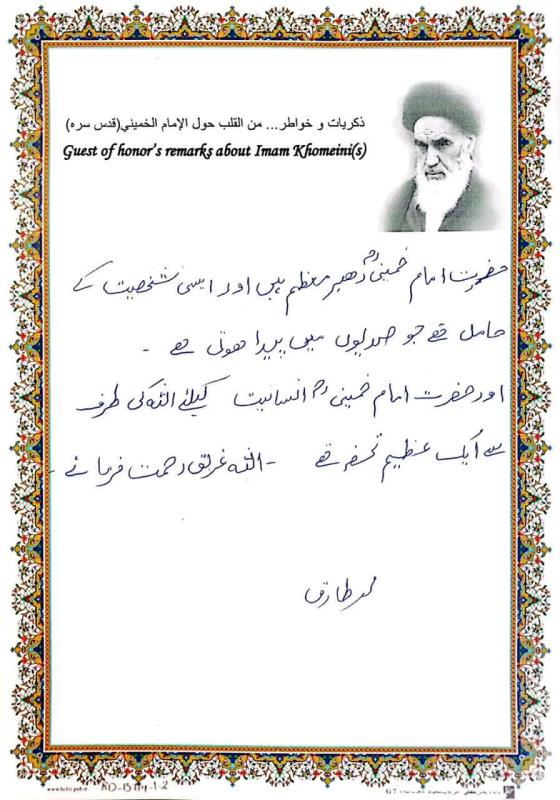 ذكريات و خواطر... من القلب حول الإمام الخميني(قدس سره)
Guest of honor's remarks about Imam Khomeini(s)
حضرت امام خمینیؒ رھبر معظم ہیں اور ایسی شخصیت کے
حامل تھے جو صدیوں میں پیدا ھوتی ھے ۔
اور حضرت امام خمینیؒ انسانیت کیلئے اللہ کی طرف
سے ایک عظیم تحفہ تھے ۔ اللہ غریق رحمت فرمائے ۔
محمد طارق